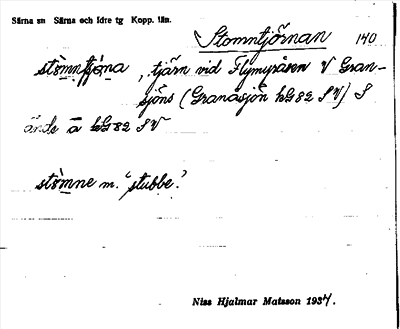 Särna sn Särna och Idre tg Kopp. län.
Stomntjörnan 140
stömntjöna, tjärn vid Flymyråsen V Gran-
sjöns (Granåsjön hG 82 SV) S
ände å hG 82 SV
stömne m. "stubbe".
Niss Hjalmar Matsson 1934.